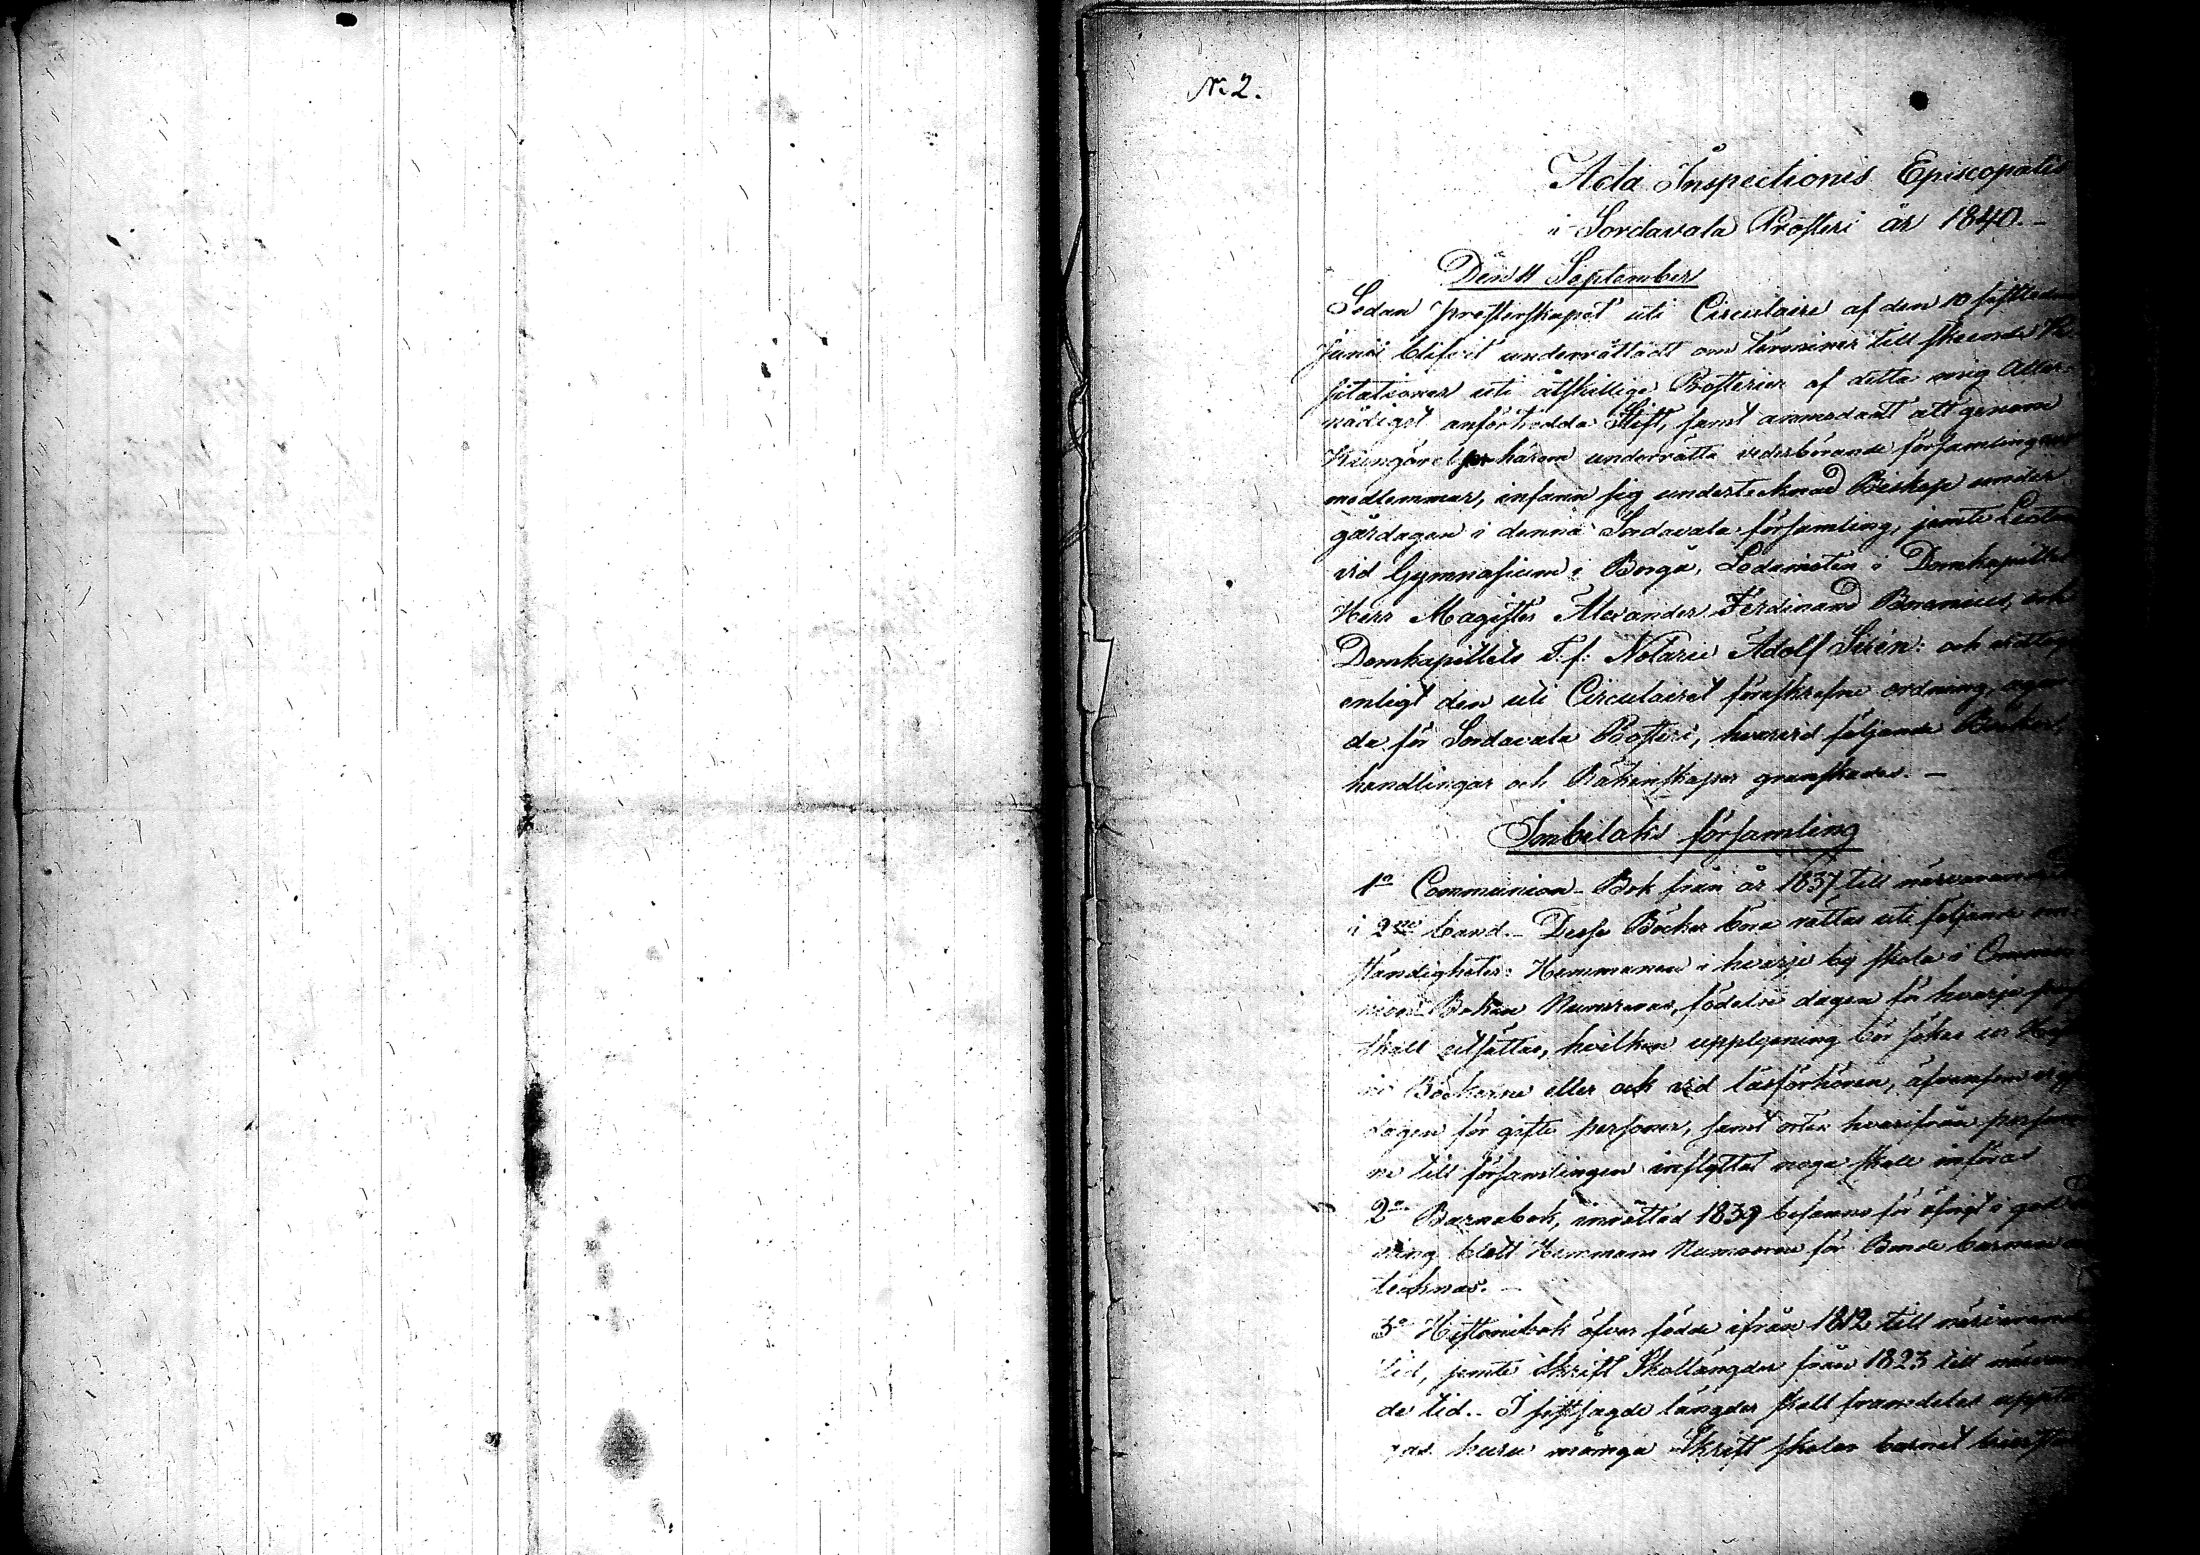 No 2.
Acta Inspectionis Episcopalis
i Sordavala Prosteri år 1840.-
Den 11 September
Sedan presterskapet uti Circulaire af den 10 sistledne
Junii blifvit underrättadt om terminer till skeende Vi-
sitationer uti åtskillige Prosterier af detta mig Aller-
nådigst anförtrodda Stift, samt anmodadt att genom
Kungörelser härom underrätta vederbörande församlingars
medlemmar, infann sig undertecknad Biskop under
gårdagen i denna Sordavala församling, jemte Lector
vid Gymnasium i Borgå, Ledamoten i Domkapitlet
Herr Magister Alexander Ferdinand Borenius, och
Domkapitlets T. f. Notarie Adolf Sirén: och
enligt den uti Circulairet föreskrefne ordning,
da för Sordavala Prosteri, hvarvid följande Böcker,
handlingar och Räkenskaper granskades. -
Imbilaks församling
1o Communion-Bok från år 1837 till närvarande
i 2ne band. - Desse Böcker böra rättas uti följande om-
ständigheter: Hemmanen i hvarje by skola i Commu-
nion-Boken Numreras, födelse dagen för hvarje
skall utsättas, hvilken upplysning bör sökas ur
Böckerne eller ock vid läsförhören, äfvensom
dagen för gifte personer, samt orten hvarifrån
ne till församlingen inflyttat noga skall införas
2o Barnabok, inrättad 1839 befanns för öfrigt i god
ning blott Hemmans Numroren för Bonde barnen
tecknas. -
3o Historiebok öfver födde ifrån 1812 till närvarande
tid, jemte Skrift Skollängder från 1823 till närvaran-
de tid. - I sistsagde längder skall framdeles uppta-
gas huru många Skrift skolor barnet